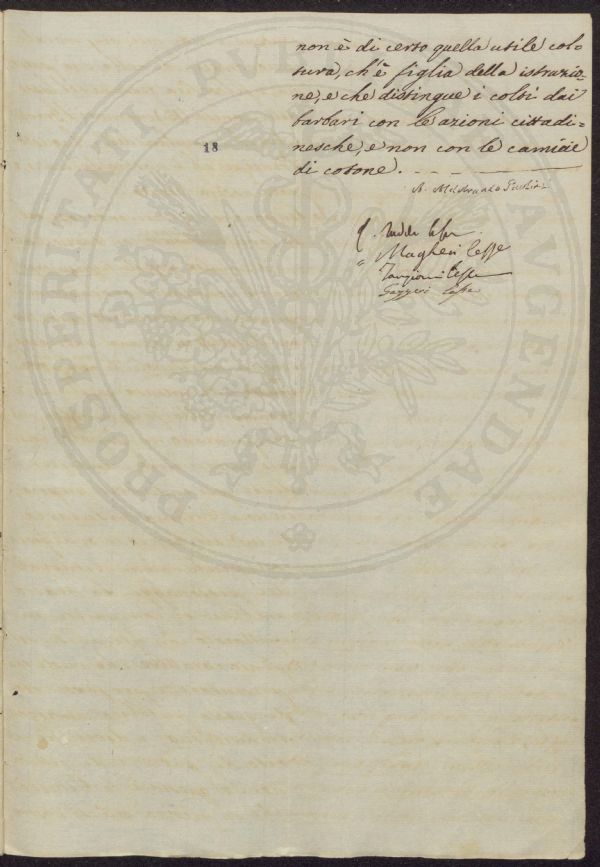 non è di certo quella utile col=
tura, ch'è figlia della istruzio=
ne, e che distingue i colti dai
barbari con le azioni cittadi=
nesche, e non con le camicie
di cotone.
18
A. Aldobrando
Magheri
PROSPERITATI PUBLICAE AUGENDAE